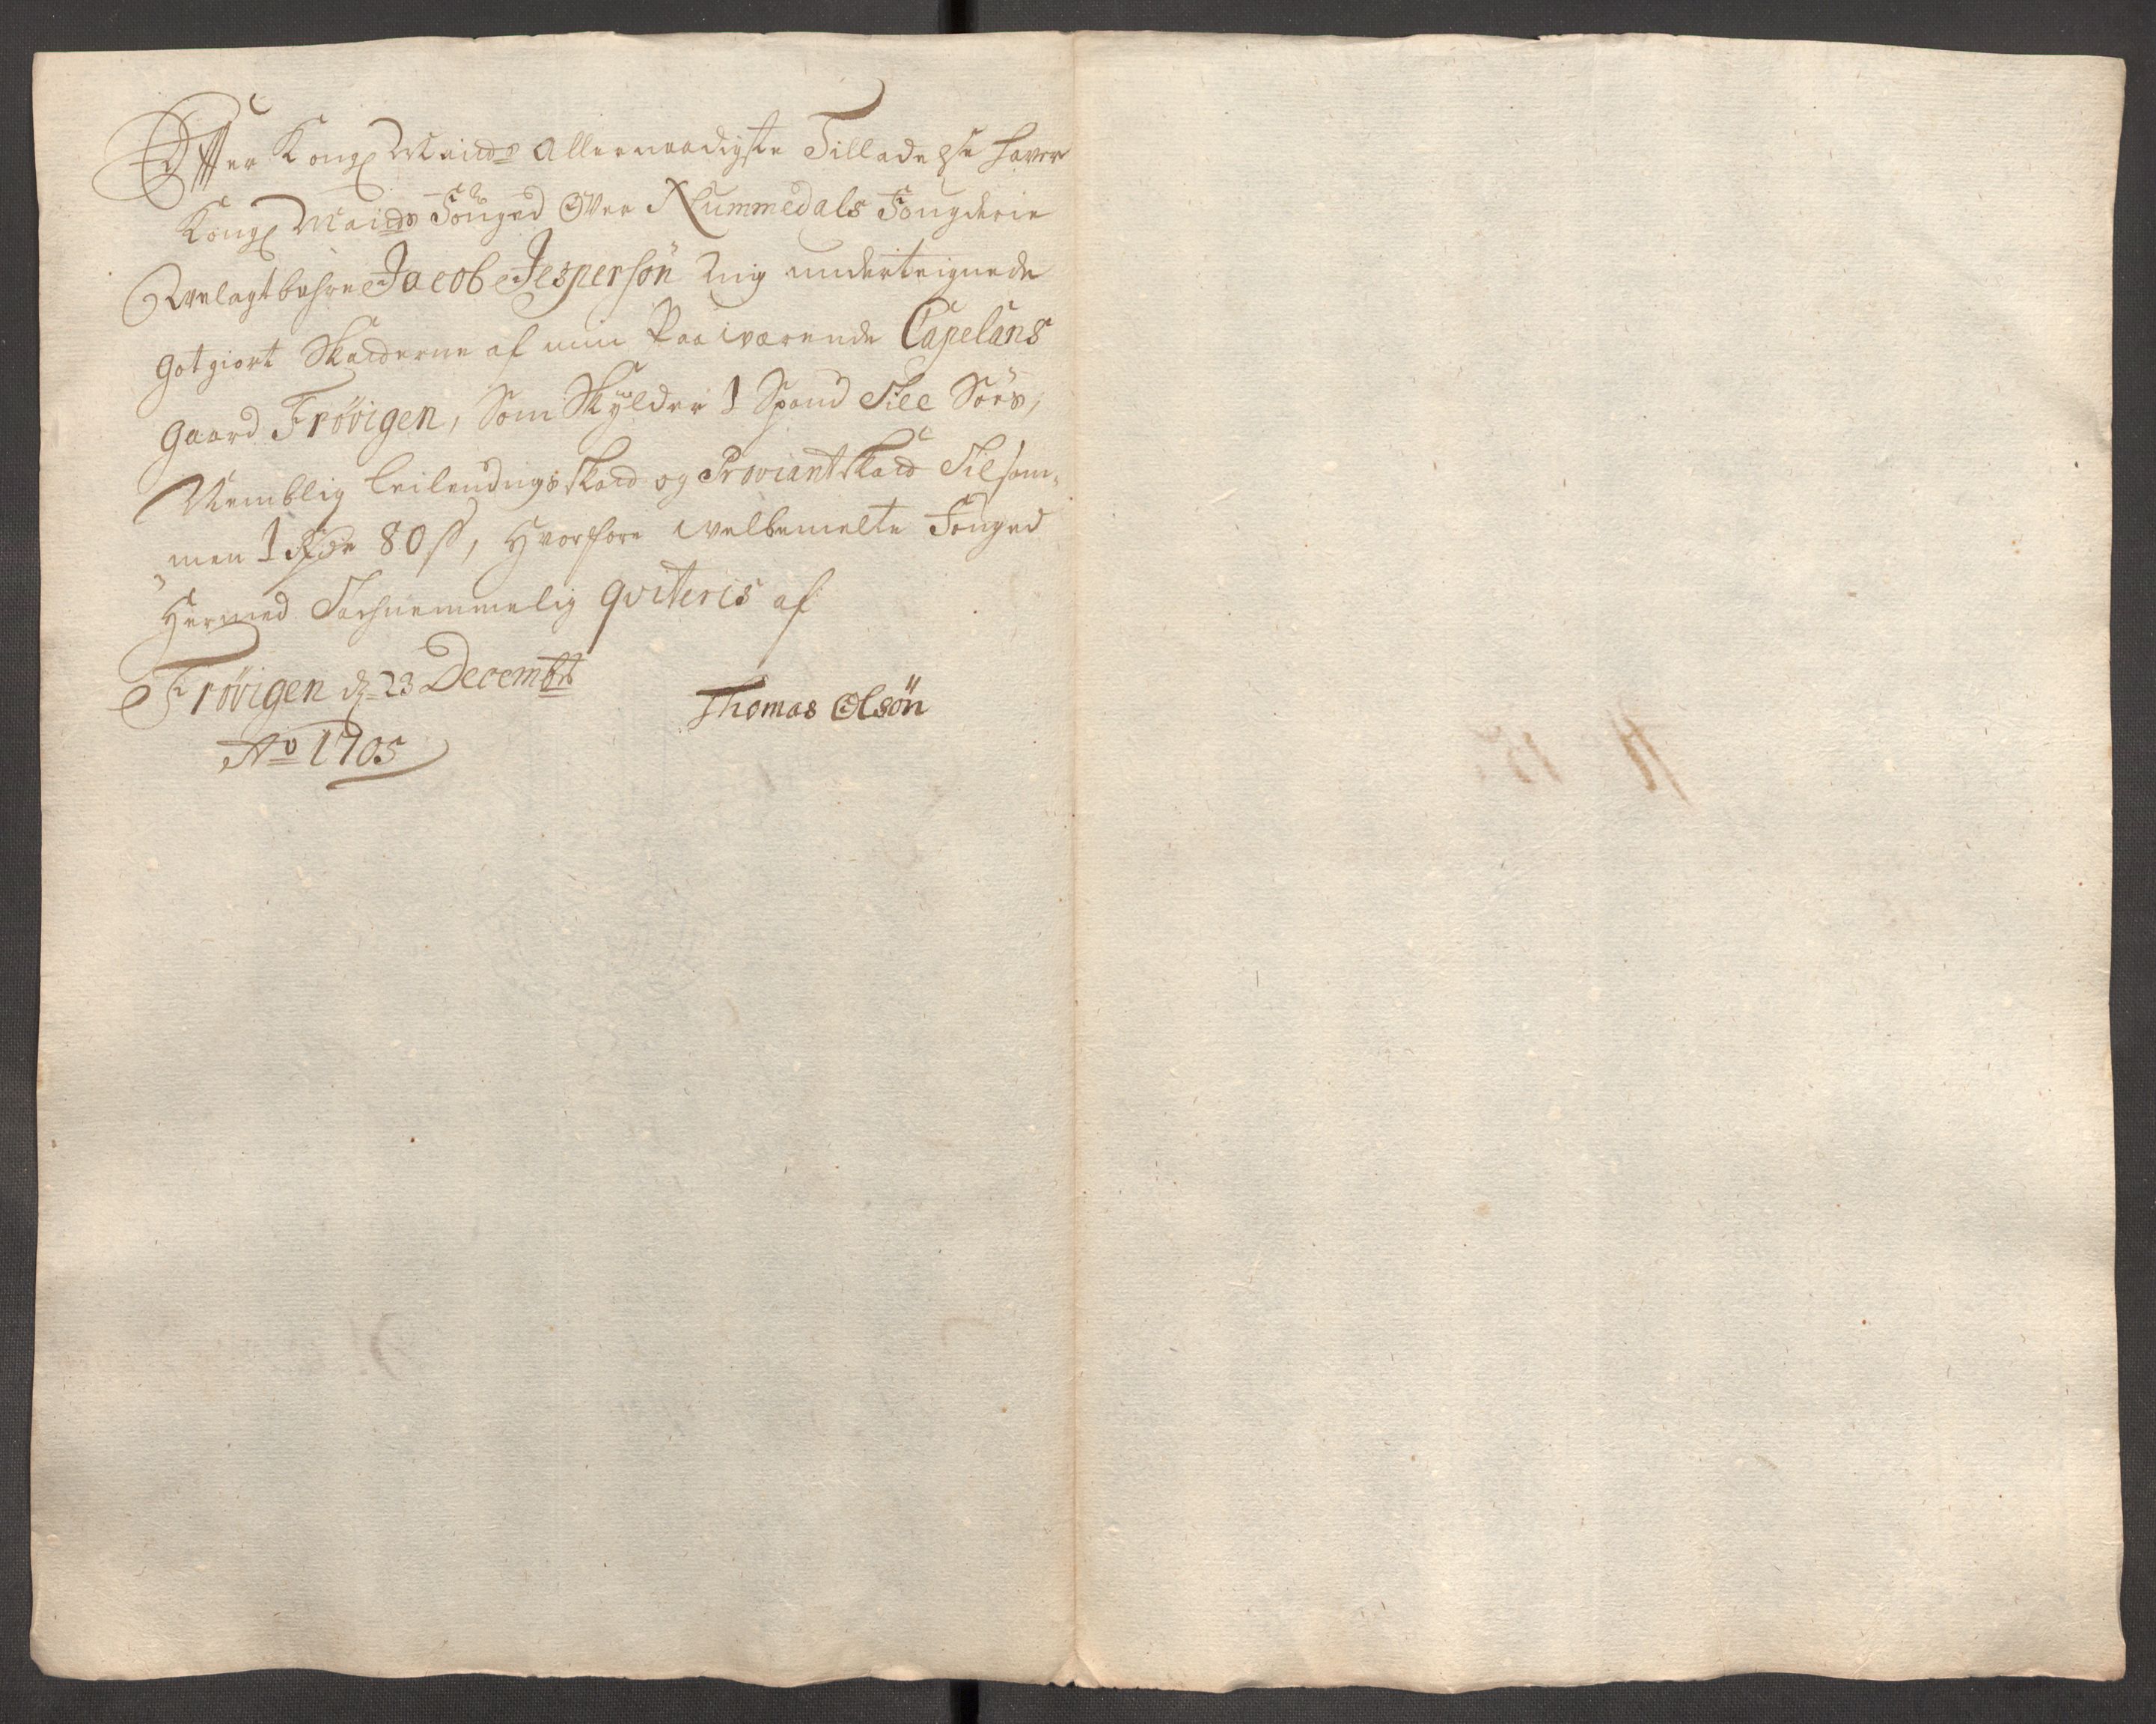 Effter Kongl Maids allernaadigste Tilladelse haver
Kongl Maids Fouged Over Nummedals Fougderie
Velagtbahre Jacob Jesperson mig underteignede
gotgiort Skatterne af min Paaværende Capelans
gaard Frøvigen, Som Skylder 1 Spand
Nemblig Leilendings skatt og Proviantskatt Tilsam-
men 1 Rdr 80 s, Hvorfore velbemelte Fouged
Hermed qviteris af
Frøvigen d. 23 Decembr
Thomas Olsön
Ao 1705